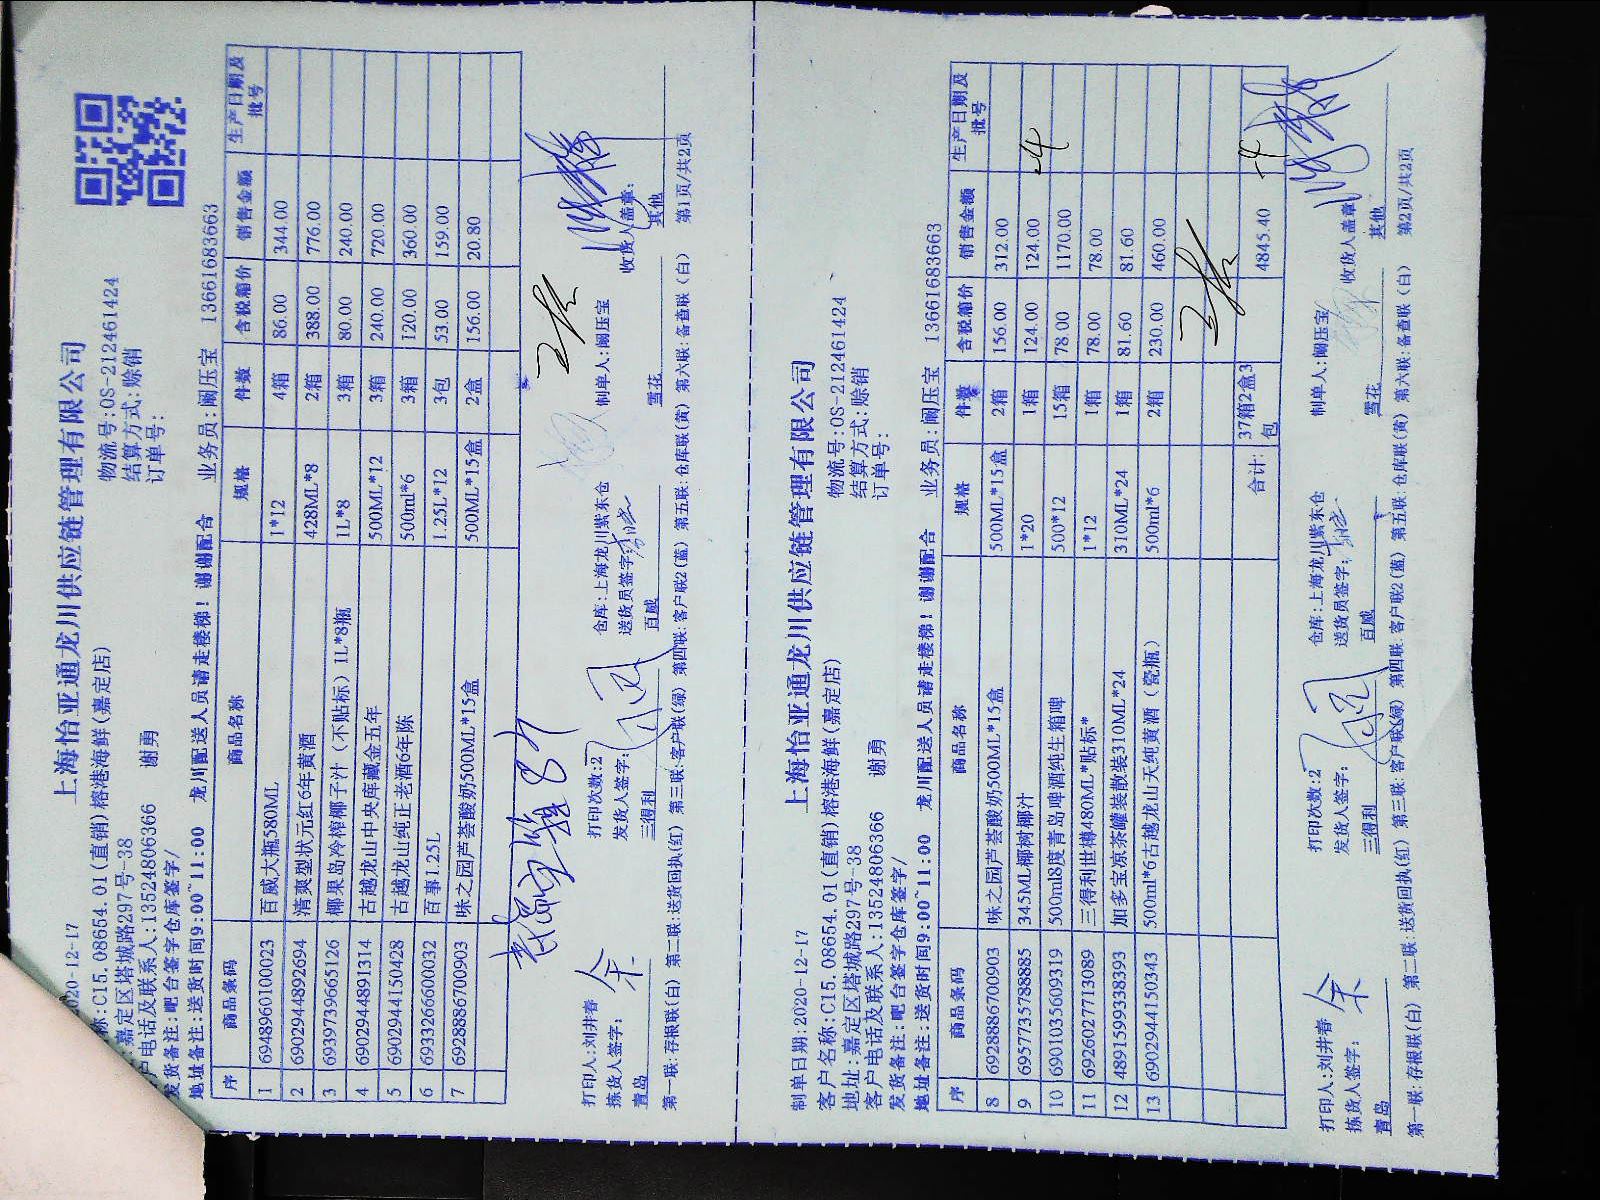 上海怡亚通龙川供应链管理有限公司
2020-12-17
物流号:OS-212461424
称:C15.08654.01(直销)榕港海鲜(嘉定店)
结算方式:赊销
:嘉定区塔城路297号-38
订单号:
户电话及联系人:13524806366 谢勇
发货备注:吧台签字仓库签字/
业务员:阚压宝 13661683663
地址备注:送货时间9:00~11:00 龙川配送人员请走楼梯!谢谢配合
序 商品条码 商品名称 规格 件数 含税箱价 销售金额 生产日期及批号
1 6948960100023 百威大瓶580ML 1*12 4箱 86.00 344.00
2 6902944892694 清爽型状元红6年黄酒 428ML*8 2箱 388.00 776.00
3 6939739665126 椰果岛冷榨椰子汁(不贴标)1L*8瓶 1L*8 3箱 80.00 240.00
4 6902944891314 古越龙山中央库藏金五年 500ML*12 3箱 240.00 720.00
5 6902944150428 古越龙山纯正老酒6年陈 500ml*6 3箱 120.00 360.00
6 6933266600032 百事1.25L 1.25L*12 3包 53.00 159.00
7 6928886700903 味之园芦荟酸奶500ML*15盒 500ML*15盒 2盒 156.00 20.80
打印人:刘井春 打印次数:2 仓库:上海龙川紫东仓 制单人:阚压宝 收货人盖章:
拣货人签字: 余 发货人签字: 送货员签字:
青岛 三得利 百威 雪花 其他
第一联:存根联(白) 第二联:送货回执(红) 第三联:客户联(绿) 第四联:客户联2(蓝) 第五联:仓库联(黄) 第六联:备查联(白) 第1页/共2页
上海怡亚通龙川供应链管理有限公司
制单日期:2020-12-17
物流号:OS-212461424
客户名称:C15.08654.01(直销)榕港海鲜(嘉定店)
结算方式:赊销
地址:嘉定区塔城路297号-38
订单号:
客户电话及联系人:13524806366 谢勇
发货备注:吧台签字仓库签字/
业务员:阚压宝 13661683663
地址备注:送货时间9:00~11:00 龙川配送人员请走楼梯!谢谢配合
序 商品条码 商品名称 规格 件数 含税箱价 销售金额 生产日期及批号
8 6928886700903 味之园芦荟酸奶500ML*15盒 500ML*15盒 2箱 156.00 312.00
9 6957735788885 345ML椰树椰汁 1*20 1箱 124.00 124.00 -4
10 6901035609319 500ml8度青岛啤酒纯生箱啤 500*12 15箱 78.00 1170.00
11 6926027713089 三得利世樽480ML*贴标* 1*12 1箱 78.00 78.00
12 4891599338393 加多宝凉茶罐装散装310ML*24 310ML*24 1箱 81.60 81.60
13 6902944150343 500ml*6古越龙山天纯黄酒(瓷瓶) 500ml*6 2箱 230.00 460.00
合计: 37箱2盒3包 4845.40 -4
打印人:刘井春 打印次数:2 仓库:上海龙川紫东仓 制单人:阚压宝 收货人盖章:
拣货人签字: 余 发货人签字: 送货员签字:
青岛 三得利 百威 雪花 其他
第一联:存根联(白) 第二联:送货回执(红) 第三联:客户联(绿) 第四联:客户联2(蓝) 第五联:仓库联(黄) 第六联:备查联(白) 第2页/共2页